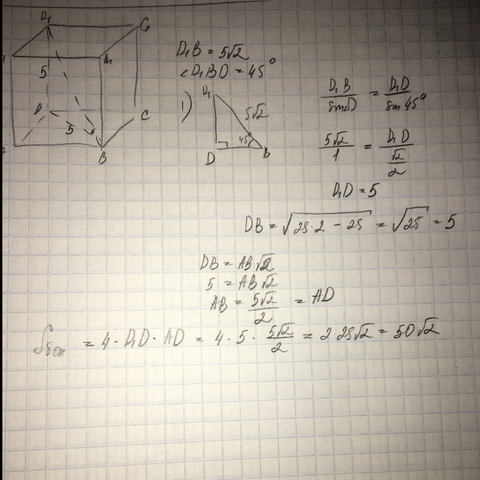 D₁ C₁
B₁
5
D 5 C
B
D₁B = 5√2
∠D₁BD = 45°
1) D₁
5√2
45°
D B
D₁B/sin D = D₁D/sin 45°
5√2/1 = D₁D/(√2/2)
D₁D = 5
DB = √(25·2 − 25) = √25 = 5
DB = AB√2
5 = AB√2
AB = 5√2/2 = AD
Sбок = 4·D₁D·AD = 4·5·5√2/2 = 2·25√2 = 50√2